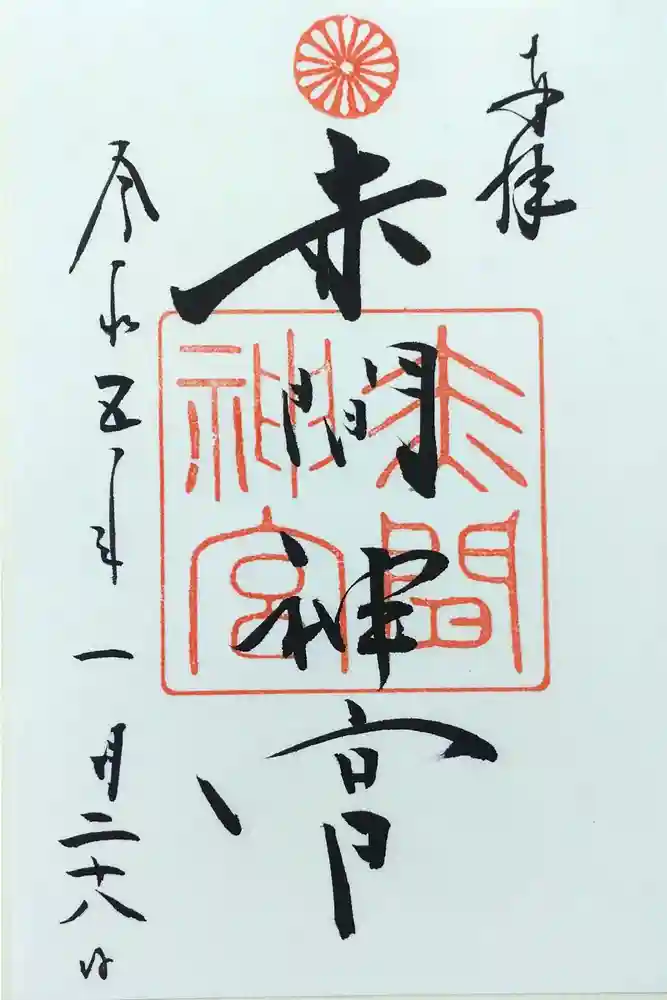 奉拝
赤間神宮
赤間
神宮
令和五年一月二十八日